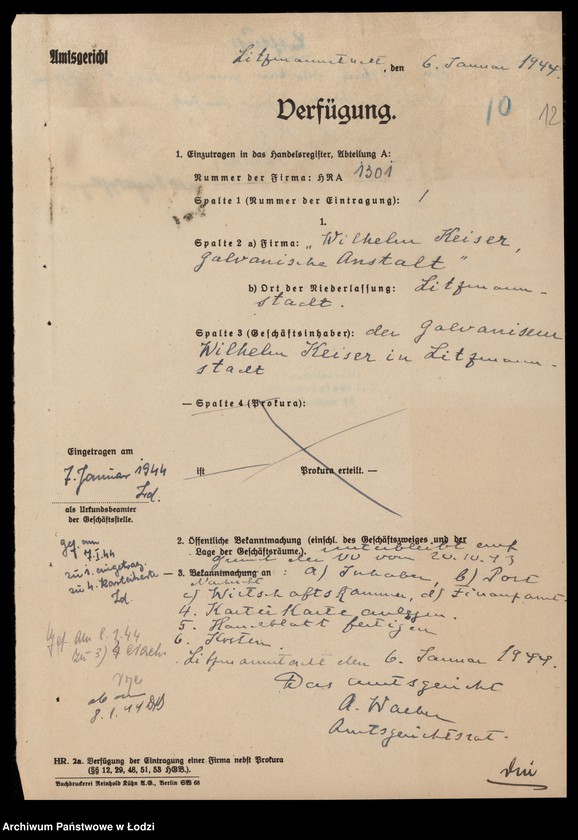 Amtsgericht
Litzmannstadt, den 6. Januar 1944.
Verfügung.
10 12
1. Einzutragen in das Handelsregister, Abteilung A:
Nummer der Firma: HRA 1301
Spalte 1 (Nummer der Eintragung): 1
1.
Spalte 2 a) Firma: „Wilhelm Keiser,
galvanische Anstalt"
b) Ort der Niederlassung: Litzmann-
stadt.
Spalte 3 (Geschäftsinhaber): der Galvaniseur
Wilhelm Keiser in Litzmann-
stadt
— Spalte 4 (Prokura):
ist Prokura erteilt. —
Eingetragen am
7. Januar 1944
als Urkundsbeamter
der Geschäftsstelle.
2. Öffentliche Bekanntmachung (einschl. des Geschäftszweiges und der
Lage der Geschäftsräume.) unterbleibt auf
Grund der VO vom 20.10.43
— 3. Bekanntmachung an: a) Inhaber, b) Post
c) Wirtschaftskammer, d) Finanzamt.
4. Karteikarte anlegen.
5. Handblatt fertigen
6. Kosten.
Litzmannstadt den 6. Januar 1944.
Das Amtsgericht
Amtsgerichtsrat.
7.I.44
zu 1. eingetrag.
zu 4. Karteikarte
gef am 8.1.44
zu 3)
ab am
8.1.44
HR. 2a. Verfügung der Eintragung einer Firma nebst Prokura
(§§ 12, 29, 48, 51, 53 HGB.).
Buchdruckerei Reinhold Kühn A.G., Berlin SW 68
Archiwum Państwowe w Łodzi